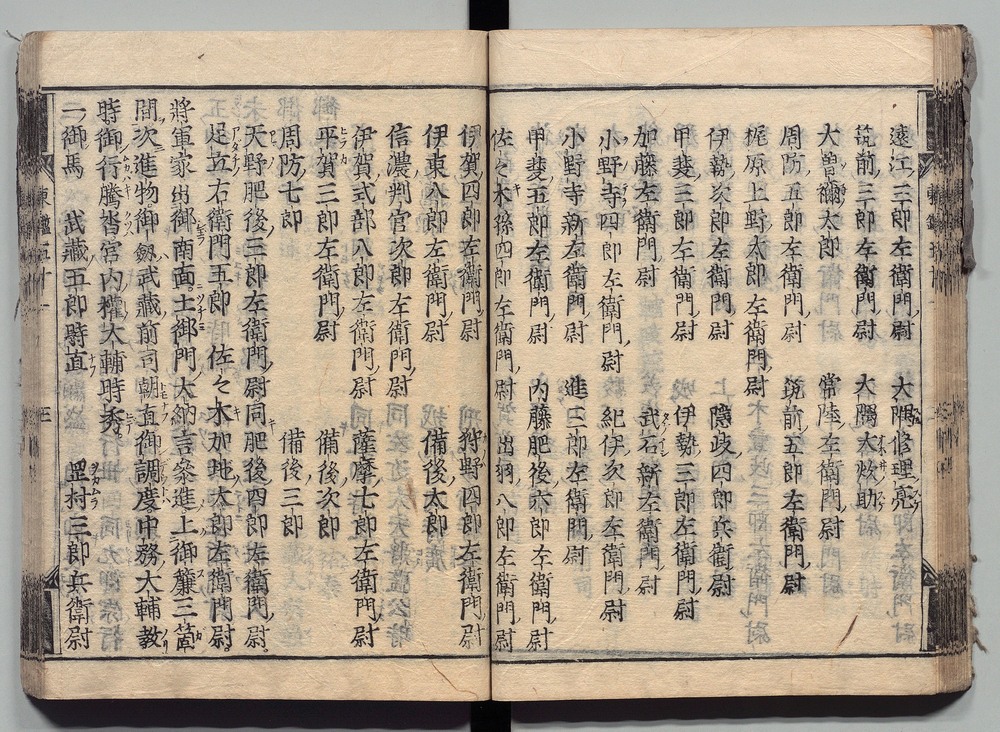 遠江三郎左衛門尉 大隅修理亮
筑前三郎左衛門尉 大隅大炊助
大曽禰太郎 常陸左衛門尉
周防五郎左衛門尉 筑前五郎左衛門尉
梶原上野太郎左衛門尉
伊勢次郎左衛門尉 隠岐四郎兵衛尉
甲斐三郎左衛門尉 伊勢三郎左衛門尉
加藤左衛門尉 武石新左衛門尉
小野寺四郎左衛門尉 紀伊次郎左衛門尉
小野寺新左衛門尉 進三郎左衛門尉
甲斐五郎左衛門尉 内藤肥後六郎左衛門尉
佐々木孫四郎左衛門尉 出羽八郎左衛門尉
伊賀四郎左衛門尉 狩野四郎左衛門尉
伊東八郎左衛門尉 備後太郎
信濃判官次郎左衛門尉
伊賀式部八郎左衛門尉 薩摩七郎左衛門尉
平賀三郎左衛門尉 備後次郎
周防七郎 備後三郎
天野肥後三郎左衛門尉 同肥後四郎左衛門尉
足立右衛門五郎 佐々木加地太郎左衛門尉
將軍家出御南面土御門大納言參進上御簾三箇
間次進物御劔武藏前司朝直御調度中務大輔教
時御行騰沓宮内權大輔時秀
一御馬 武藏五郎時直 𡈽村三郎兵衛尉
東鑑五十一 三